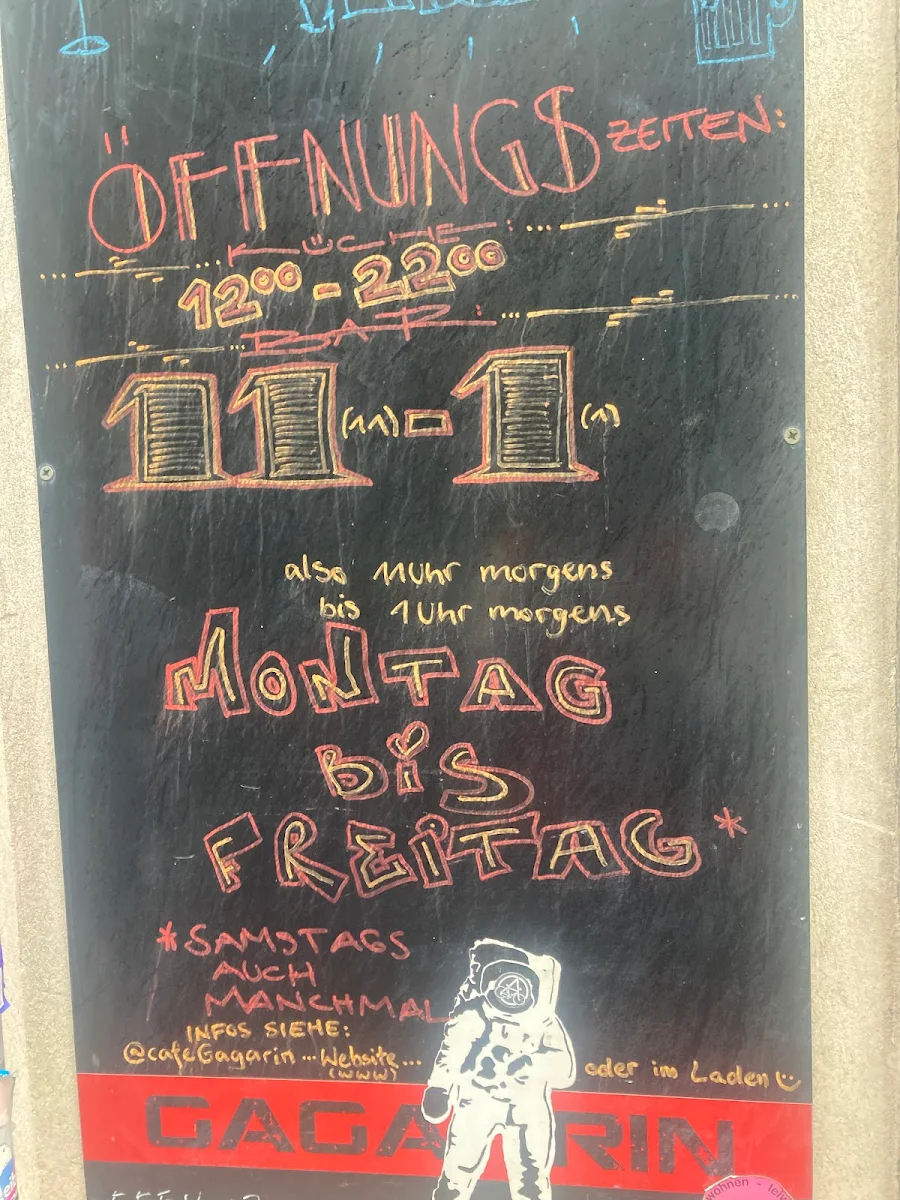 ÖFFNUNGSZEITEN:
KÜCHE:
12⁰⁰ - 22⁰⁰
BAR:
11 (11) - 1 (1)
also 11Uhr morgens
bis 1Uhr morgens
MONTAG
BiS
FREiTAG*
*SAMSTAGS
AUCH
MANCHMAL
INFOS SIEHE:
@cafeGagarin ... Website ... oder im Laden
(WWW)
GAGARIN
wohnen -